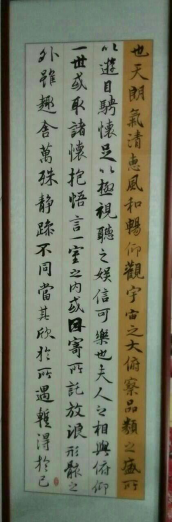 也天朗氣清惠風和暢仰觀宇宙之大俯察品類之盛所
以遊目騁懷足以極視聽之娛信可樂也夫人之相與俯仰
一世或取諸懷抱悟言一室之内或因寄所託放浪形骸之
外雖趣舍萬殊静躁不同當其欣於所遇蹔得於己